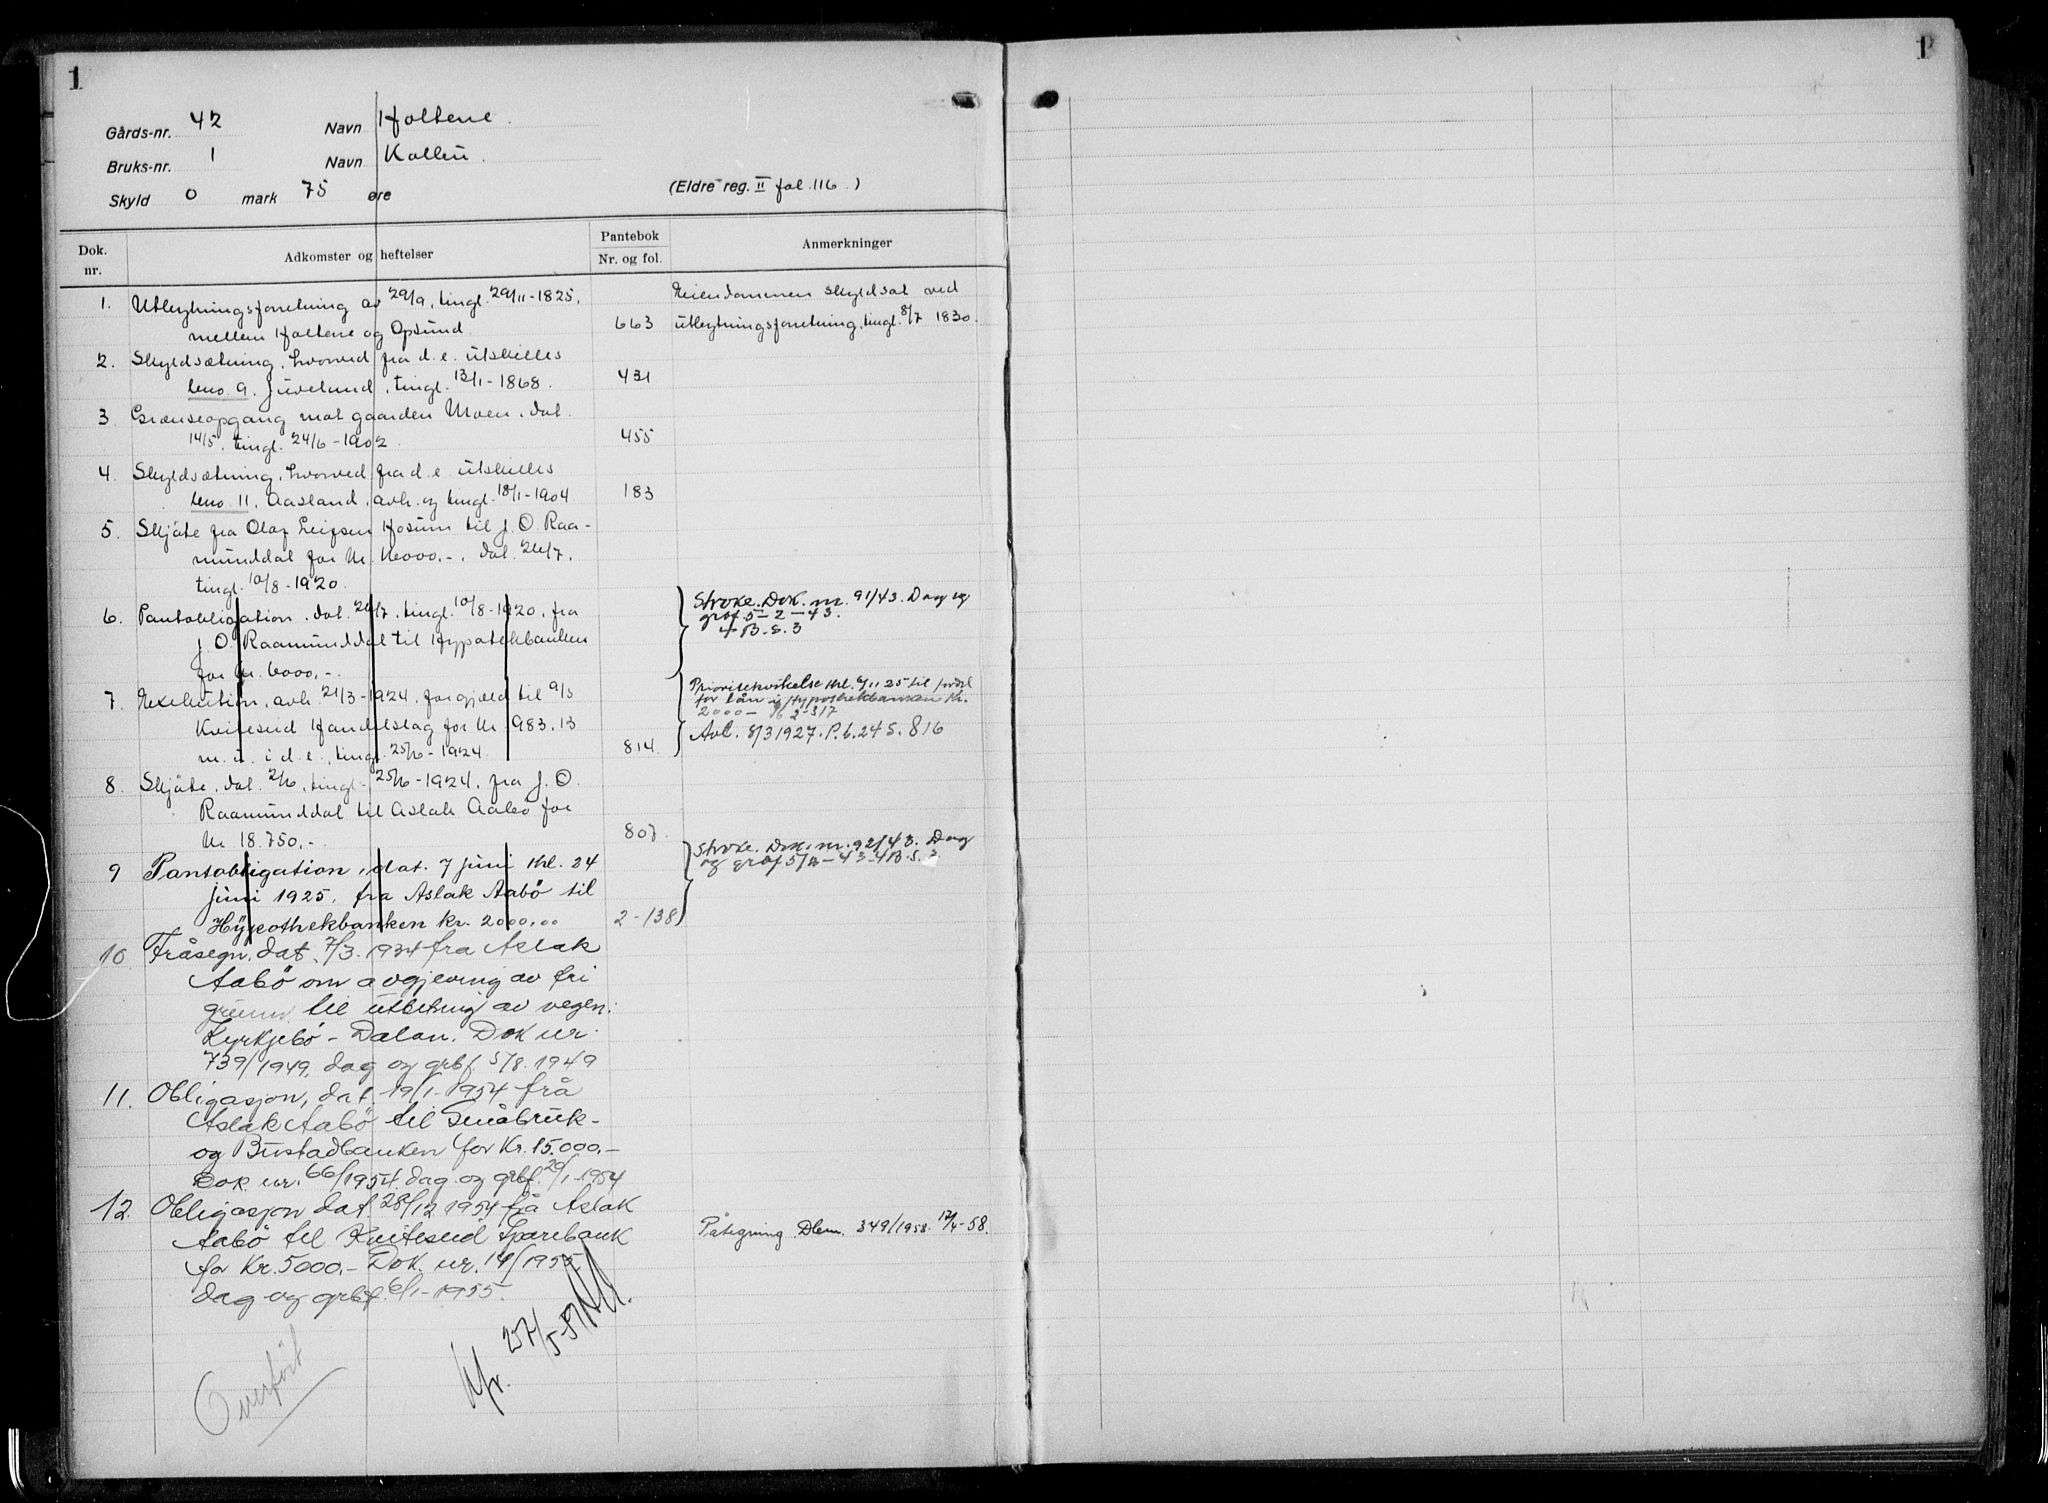 1
1
Gårds-nr. 42 Navn Holtene.
Bruks-nr. 1 Navn Kollen.
Skyld 0 mark 75 øre (Eldre reg. II fol. 116.)
Dok. nr. Adkomster og heftelser Pantebok Nr. og fol. Anmerkninger
1. Utskiftningsforretning av 29/9, tingl. 29/11-1825, Eiendommen skyldsat ved
mellem Holtene og Opsund. 663 utskiftningsforretning, tingl. 8/7 1830.
2. Skyldsætning, hvorved fra d. e. utskilles
bno. 9. Juveland, tingl. 13/1-1868. 431
3 Grænseopgang mot gaarden Moen, dat.
14/5, tingl. 24/6-1902. 455
4. Skyldsætning, hvorved fra d. e. utskilles
bno. 11. Aasland, avh. og tingl. 18/1-1904. 183
5. Skjøte fra Olaf Leifsen Hosum til J. O. Raa-
munddal for kr. 16000.-, dat. 26/7,
tingl. 10/8-1920.
6. Pantobligation, dat. 26/7, tingl. 10/8-1920, fra
J. O. Raamunddal til Hypotekbanken
for kr. 6000,-.
Stroke. Dok. nr. 91/43. Dag og
grbf 5-2-43.
4 B. S. 3
7. Exekution, avh. 21/3-1924, for gjæld til a/s
Kviteseid Handelslag for kr. 983.13
m. v. i d. e., tingl. 25/6-1924. 814
Prioritetsvikelse tkl. 6/11 25 til fordel
for lån i Hypothekbanken Kr.
2000- 2-317
Avl. 8/3 1927. P.b. 24 S. 816
8. Skjøte, dat. 2/6, tingl. 25/6-1924, fra J. O.
Raamunddal til Aslak Aabø for
kr 18.750.-. 807.
9 Pantobligation, dat. 7 juni tkl. 24
juni 1925, fra Aslak Aabö til
Hÿpothekbanken kr. 2000,00 2-138
Stroke. Dok. nr. 92/43. Dag
og grbf 5/2-43-4B. S. 3
10 Fråsegn, dat. 7/3. 1934 fra Aslak
Aabö om avgjeving av fri
grunn til utbetring av vegen:
Kyrkjebö - Dalan. Dok nr.
739/1949, dag og grbf. 5/8. 1949
11. Obligasjon, dat. 19/1-1954 frå
Aslak Aabö til Småbruk-
og Bustadbanken for Kr. 15.000.-
Dok. nr. 66/1954. dag og grbf. 20/1-1954
12. Obligasjon dat. 28/12 1954 frå Aslak
Aabö til Kviteseid Sparebank
for Kr. 5000.- Dok. nr. 14/1955
dag og grbf. 6/1-1955.
Påtegning Dbnr. 349/1958. 12/4-58.
Overført